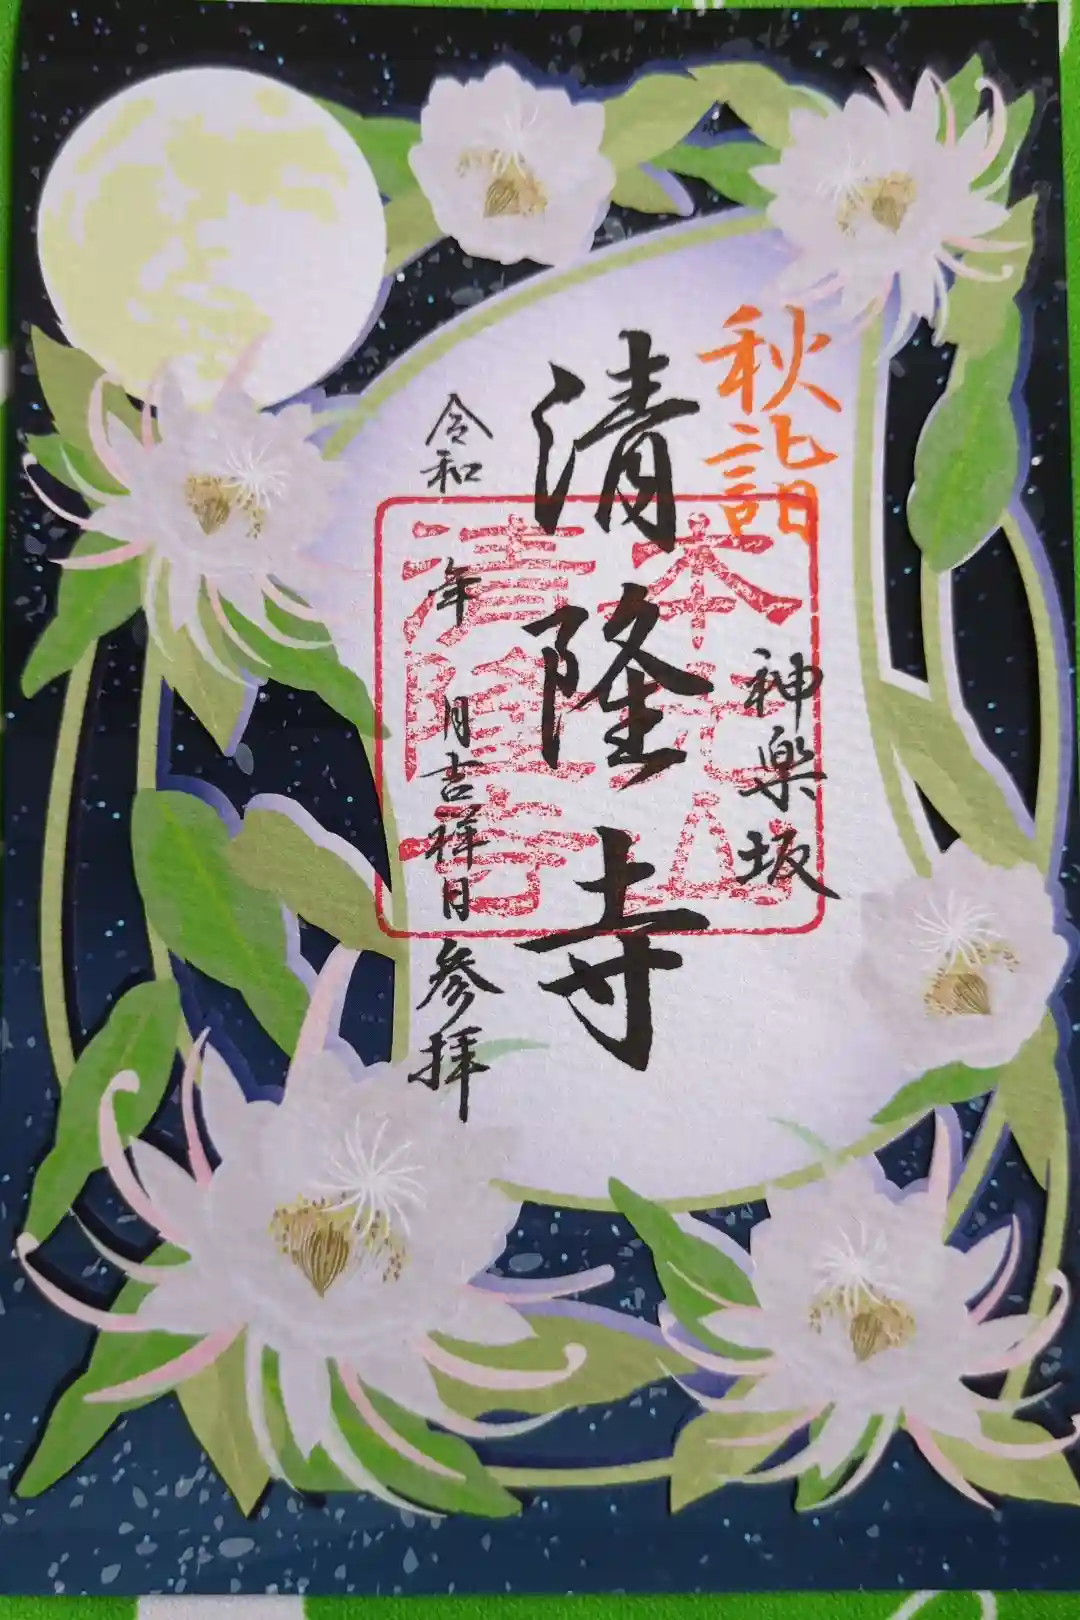 秋詣
神楽坂
清隆寺
令和 年 月吉祥日参拝
清隆寺